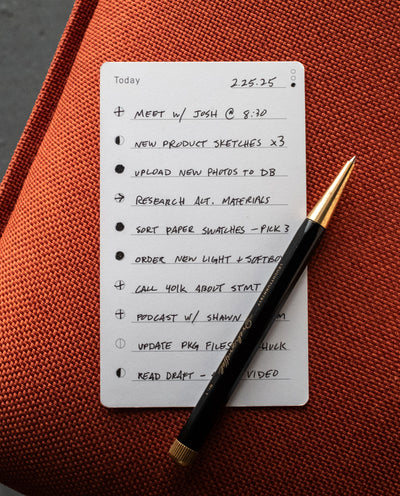 Today 2.25.25
MEET W/ JOSH @ 8:30
NEW PRODUCT SKETCHES x3
UPLOAD NEW PHOTOS TO DB
RESEARCH ALT. MATERIALS
SORT PAPER SWATCHES – PICK 3
ORDER NEW LIGHT + SOFTBO
CALL 401K ABOUT STMT
PODCAST W/ SHAWN
UPDATE PKG FILES
READ DRAFT – VIDEO